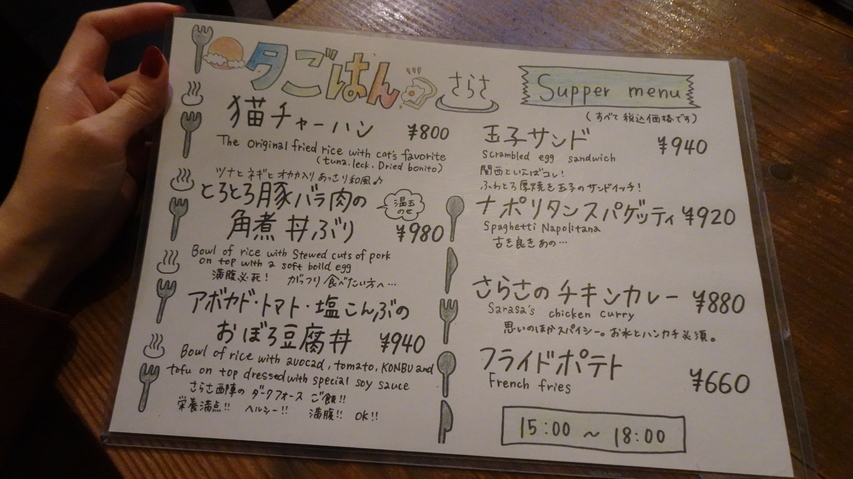 夕ごはん
さらさ
Supper menu
(すべて税込価格です)
猫チャーハン ¥800
The original fried rice with cat's favorite
(tuna. leek. Dried bonito)
ツナとネギとオカカ入りあっさり和風♪
とろとろ豚バラ肉の
角煮丼ぶり ¥980
温玉
のせ
Bowl of rice with Stewed cuts of pork
on top with a soft boild egg
満腹必死! がっつり食べたい方へ…
アボカド・トマト・塩こんぶの
おぼろ豆腐丼 ¥940
Bowl of rice with avocad, tomato, KONBU and
tofu on top dressed with special soy sauce
さらさ西陣の ダークフォース ご飯!!
栄養満点!! ヘルシー!! 満腹!! OK!!
玉子サンド ¥940
Scrambled egg sandwich
関西といえばコレ!
ふわとろ厚焼き玉子のサンドイッチ!
ナポリタンスパゲッティ ¥920
Spaghetti Napolitana
古き良きあの…
さらさのチキンカレー ¥880
Sarasa's chicken curry
思いのほかスパイシー。お水とハンカチ必須。
フライドポテト ¥660
French fries
15:00 ~ 18:00